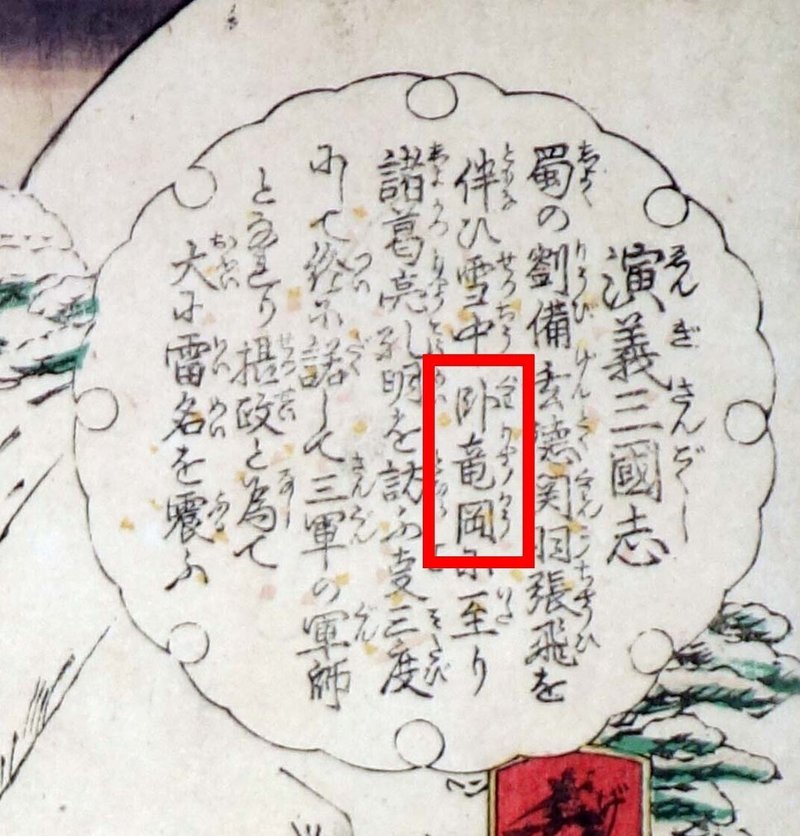 演義三國志
蜀の劉備玄德関羽張飛を
伴ひ雪中臥竜岡に至り
諸葛亮孔明を訪ふ事三度
にして終に諾して三軍の軍師
となり摂政と為て
大に雷名を震ふ